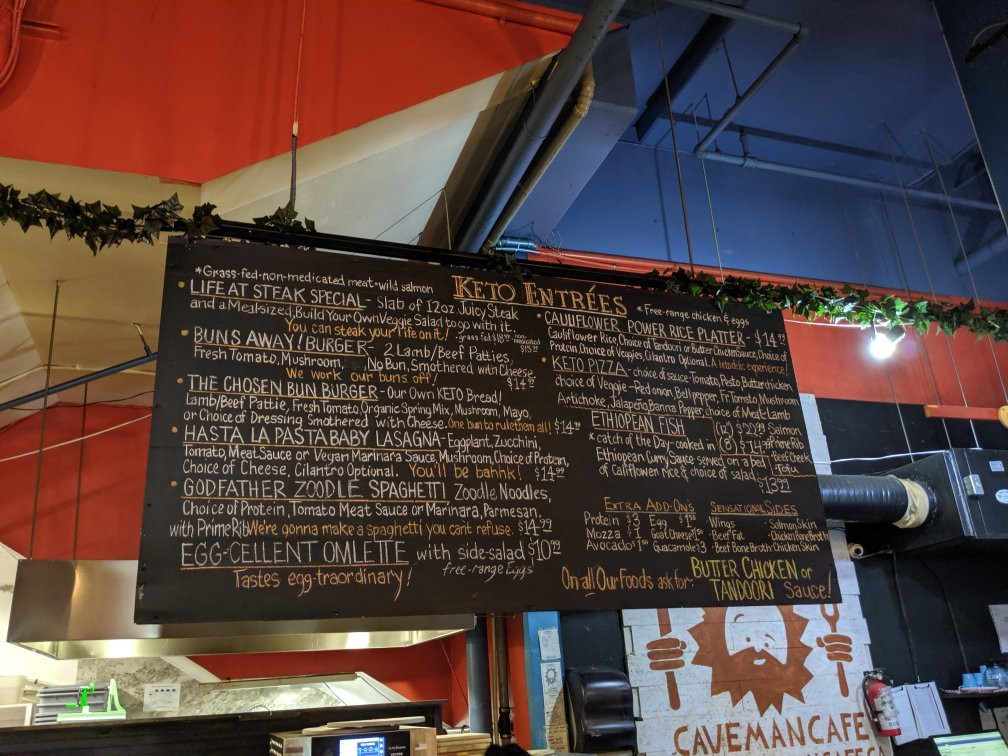 KETO ENTRÉES
*Grass-fed-non-medicated meat-wild salmon
LIFE AT STEAK SPECIAL- Slab of 12oz Juicy Steak
and a Mealsized, Build Your Own Veggie Salad to go with it.
You can steak your life on it! grass fed $18.99 non-medicated $15.99
BUNS AWAY! BURGER- 2 Lamb/Beef Patties,
Fresh Tomato, Mushroom, No Bun, Smothered with Cheese,
We work our buns off! $14.99
THE CHOSEN BUN BURGER-Our Own KETO Bread!
Lamb/Beef Pattie, Fresh Tomato, Organic Spring Mix, Mushroom, Mayo,
or Choice of Dressing Smothered with Cheese. One bun to rule them all! $14.99
HASTA LA PASTA BABY LASAGNA-Eggplant, Zucchini,
Tomato, Meat Sauce or Vegan Marinara Sauce, Mushroom, Choice of Protein,
Choice of Cheese, Cilantro Optional. You'll be bahhk! $14.99
GODFATHER ZOODLE SPAGHETTI Zoodle Noodles,
Choice of Protein, Tomato Meat Sauce or Marinara, Parmesan,
with Prime Rib We're gonna make a spaghetti you can't refuse. $14.99
EGG-CELLENT OMLETTE with side-salad $10.99
Tastes egg-traordinary! free-range Eggs
*Free-range chicken & eggs
CAULIFLOWER POWER RICE PLATTER- $14.99
Cauliflower Rice, Choice of Tandoori or Butter Chicken Sauce, Choice of
Protein, Choice of Veggies, Cilantro Optional. A ketodelic experience!
KETO PIZZA- choice of sauce-Tomato, Pesto, Butter chicken
choice of Veggie-Red onion, Bell pepper, Fr. Tomato, Mushroom
Artichoke, Jalapeño, Banna Pepper, choice of Meat-Lamb
ETHIOPIAN FISH Salmon
*catch of the Day-cooked in (8) $14.99 Prime Rib
Ethiopian Curry Sauce-served on a bed Beef Cheek
of califlower rice & choice of salad. Tofu
$13.99
EXTRA ADD-ON'S
Protein $3 Egg
Mozza $1 Goat Cheese
Avocado Guacamole 3
SENSATIONAL SIDES
·Wings ·Salmon Skin
·Beef Fat ·Chicken Bone Broth
·Beef Bone Broth ·Chicken Skin
On all Our Foods ask for: BUTTER CHICKEN or
TANDOORI Sauce!
CAVEMAN CAFE